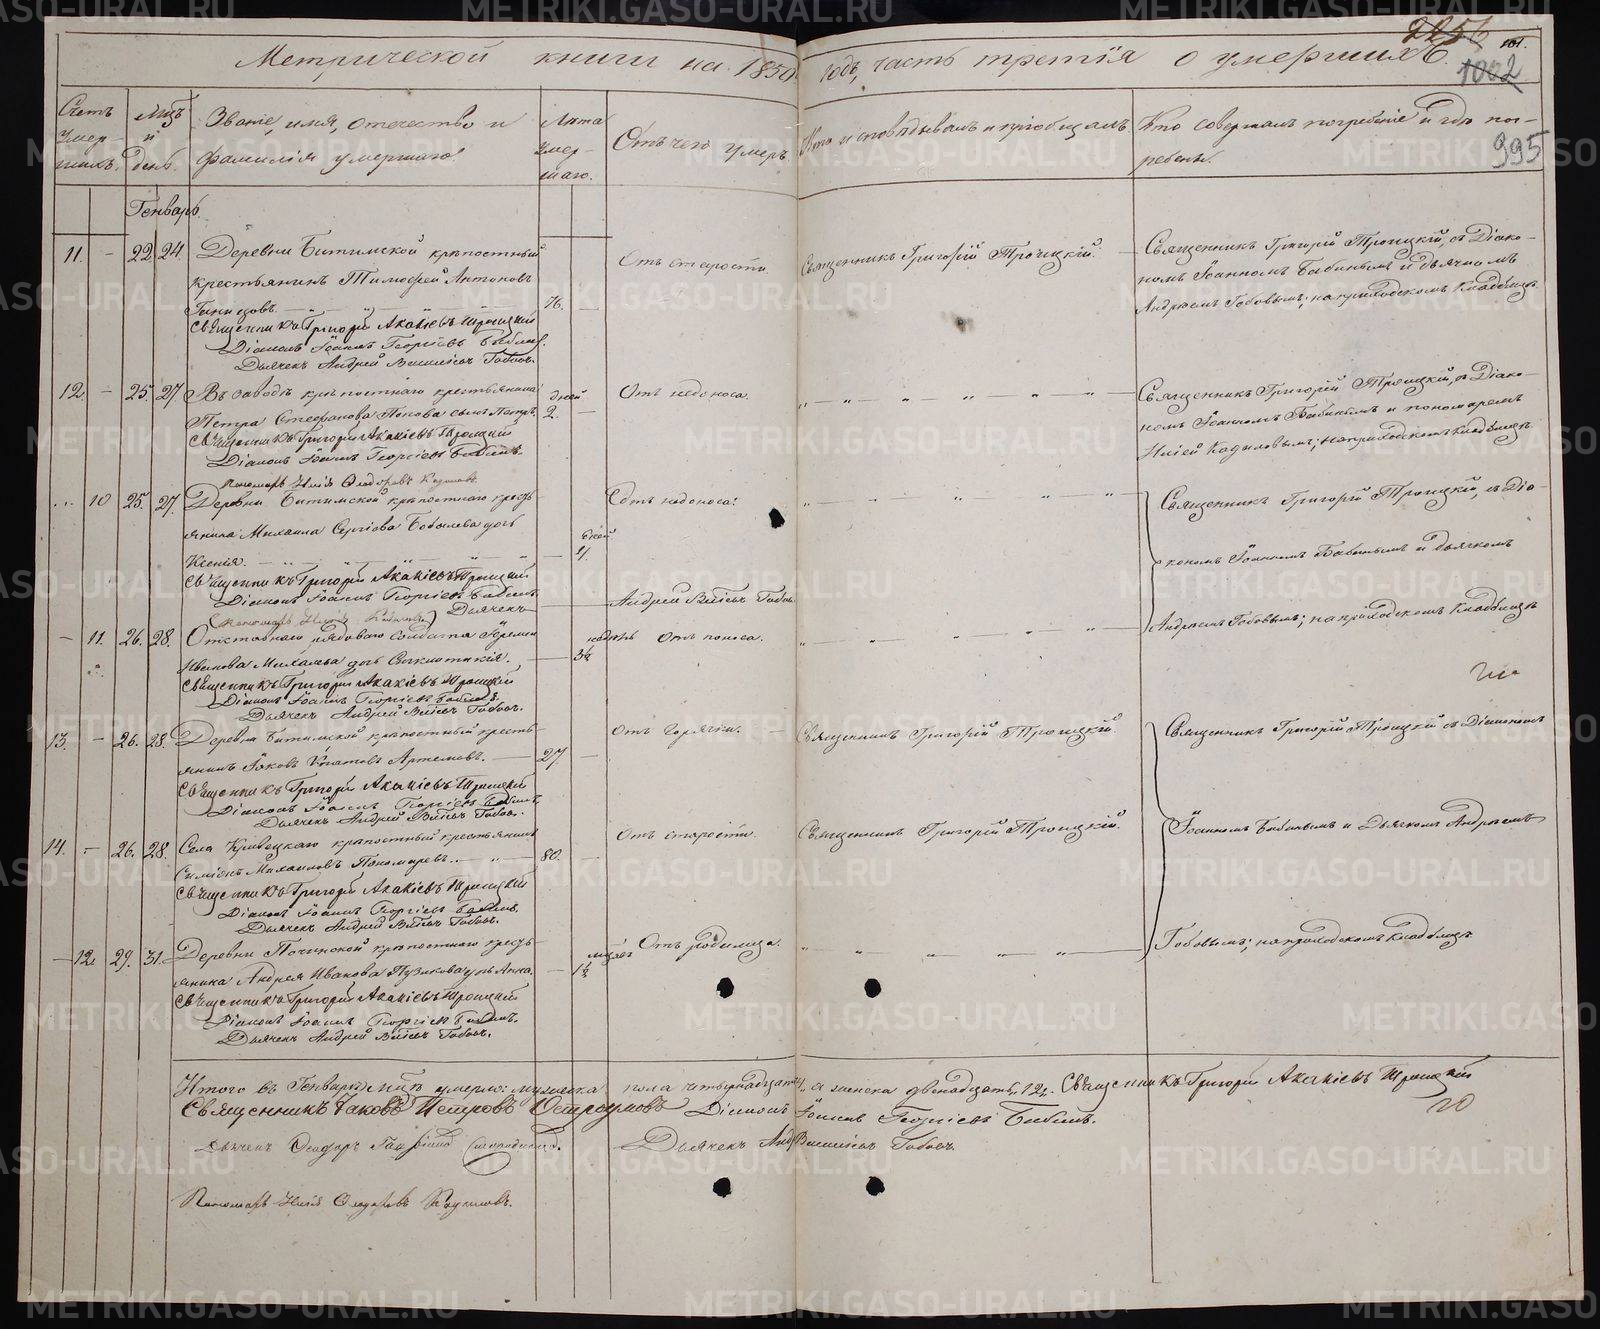 Метрической книги на 1850 годъ, часть третія о умершихъ.
2256
101.
1002
995
Счетъ умершихъ.
Мцъ и день.
Званіе, имя, отечество и фамилія умершаго.
Лѣта умершаго.
Отъ чего умеръ
Кто исповѣдывалъ и пріобщалъ
Кто совершалъ погребеніе и гдѣ погребены.
Генварь.
11. — 22. 24. Деревни Битимской крѣпостный
крестьянинъ Тимофей Антоновъ
76.
Отъ старости.
Священникъ Григорій Троицкій.
Священникъ Григорій Троицкій, съ Діако-
номъ Іоанномъ Бабинымъ и дьячкомъ
Андреемъ Гобовымъ; на приходскомъ кладбищѣ
Священникъ Григорій Акакіевъ Троицкій
Діаконъ Іоаннъ Георгіевъ Бабинъ.
Дьячекъ Андрей Васильевъ Гобовъ.
12. — 25. 27. Въ заводѣ крѣпостнаго крестьянина
Петра Стефанова Попова сынъ Петръ.
дней 2.
Отъ недоноса.
Священникъ Григорій Троицкій, съ Діако-
номъ Іоанномъ Бабинымъ и пономаремъ
Иліей Кадиловымъ; на приходскомъ кладбищѣ
Священникъ Григорій Акакіевъ Троицкій
Діаконъ Іоаннъ Георгіевъ Бабинъ.
Пономарь Илія Ѳеодоровъ
10 25. 27. Деревни Битимской крѣпостнаго кресть-
янина Михаила Сергіева Бобылева дочь
Ксенія.
дней
Отъ недоноса.
Священникъ Григорій Троицкій, съ Діа-
кономъ Іоанномъ Бабинымъ и дьячкомъ
Андреемъ Гобовымъ; на приходскомъ кладбищѣ
Священникъ Григорій Акакіевъ Троицкій
Діаконъ Іоаннъ Георгіевъ Бабинъ.
Дьячекъ Андрей Васильевъ Гобовъ.
— 11. 26. 28. Отставнаго рядоваго солдата
Иванова Михалева дочь
Отъ поноса.
Священникъ Григорій Акакіевъ Троицкій
Діаконъ Іоаннъ Георгіевъ Бабинъ.
Дьячекъ Андрей Васильевъ Гобовъ.
13. — 26. 28. Деревни Битимской крѣпостный кресть-
янинъ Іаковъ Игнатовъ Артемовъ.
27
Отъ горячки.
Священникъ Григорій Троицкій.
Священникъ Григорій Троицкій съ Діакономъ
Священникъ Григорій Акакіевъ Троицкій
Діаконъ Іоаннъ Георгіевъ Бабинъ.
Дьячекъ Андрей Васильевъ Гобовъ.
14. — 26. 28. Села крѣпостный крестьянинъ
Михайловъ Пономаревъ.
80.
Отъ старости.
Священникъ Григорій Троицкій.
Іоанномъ Бабинымъ и Дьячкомъ Андреемъ
Священникъ Григорій Акакіевъ Троицкій
Діаконъ Іоаннъ Георгіевъ Бабинъ.
Дьячекъ Андрей Васильевъ Гобовъ.
— 12. 29. 31. Деревни Починской крѣпостнаго кресть-
янина Андрея Иванова Пузикова дочь Анна.
1½
Отъ родимца.
Гобовымъ; на приходскомъ кладбищѣ
Священникъ Григорій Акакіевъ Троицкій
Діаконъ Іоаннъ Георгіевъ Бабинъ.
Дьячекъ Андрей Васильевъ Гобовъ.
Итого въ Генварѣ мцѣ умерло: мужеска пола четырнадцать, а женска двенадцать 12. Священникъ Григорій Акакіевъ Троицкій
Священникъ Іаковъ Петровъ Остроумовъ Діаконъ Іоаннъ Георгіевъ Бабинъ.
Дьячекъ Ѳеодоръ Дьячекъ Андрей Васильевъ Гобовъ.
Пономарь Илія Ѳеодоровъ
METRIKI.GASO-URAL.RU